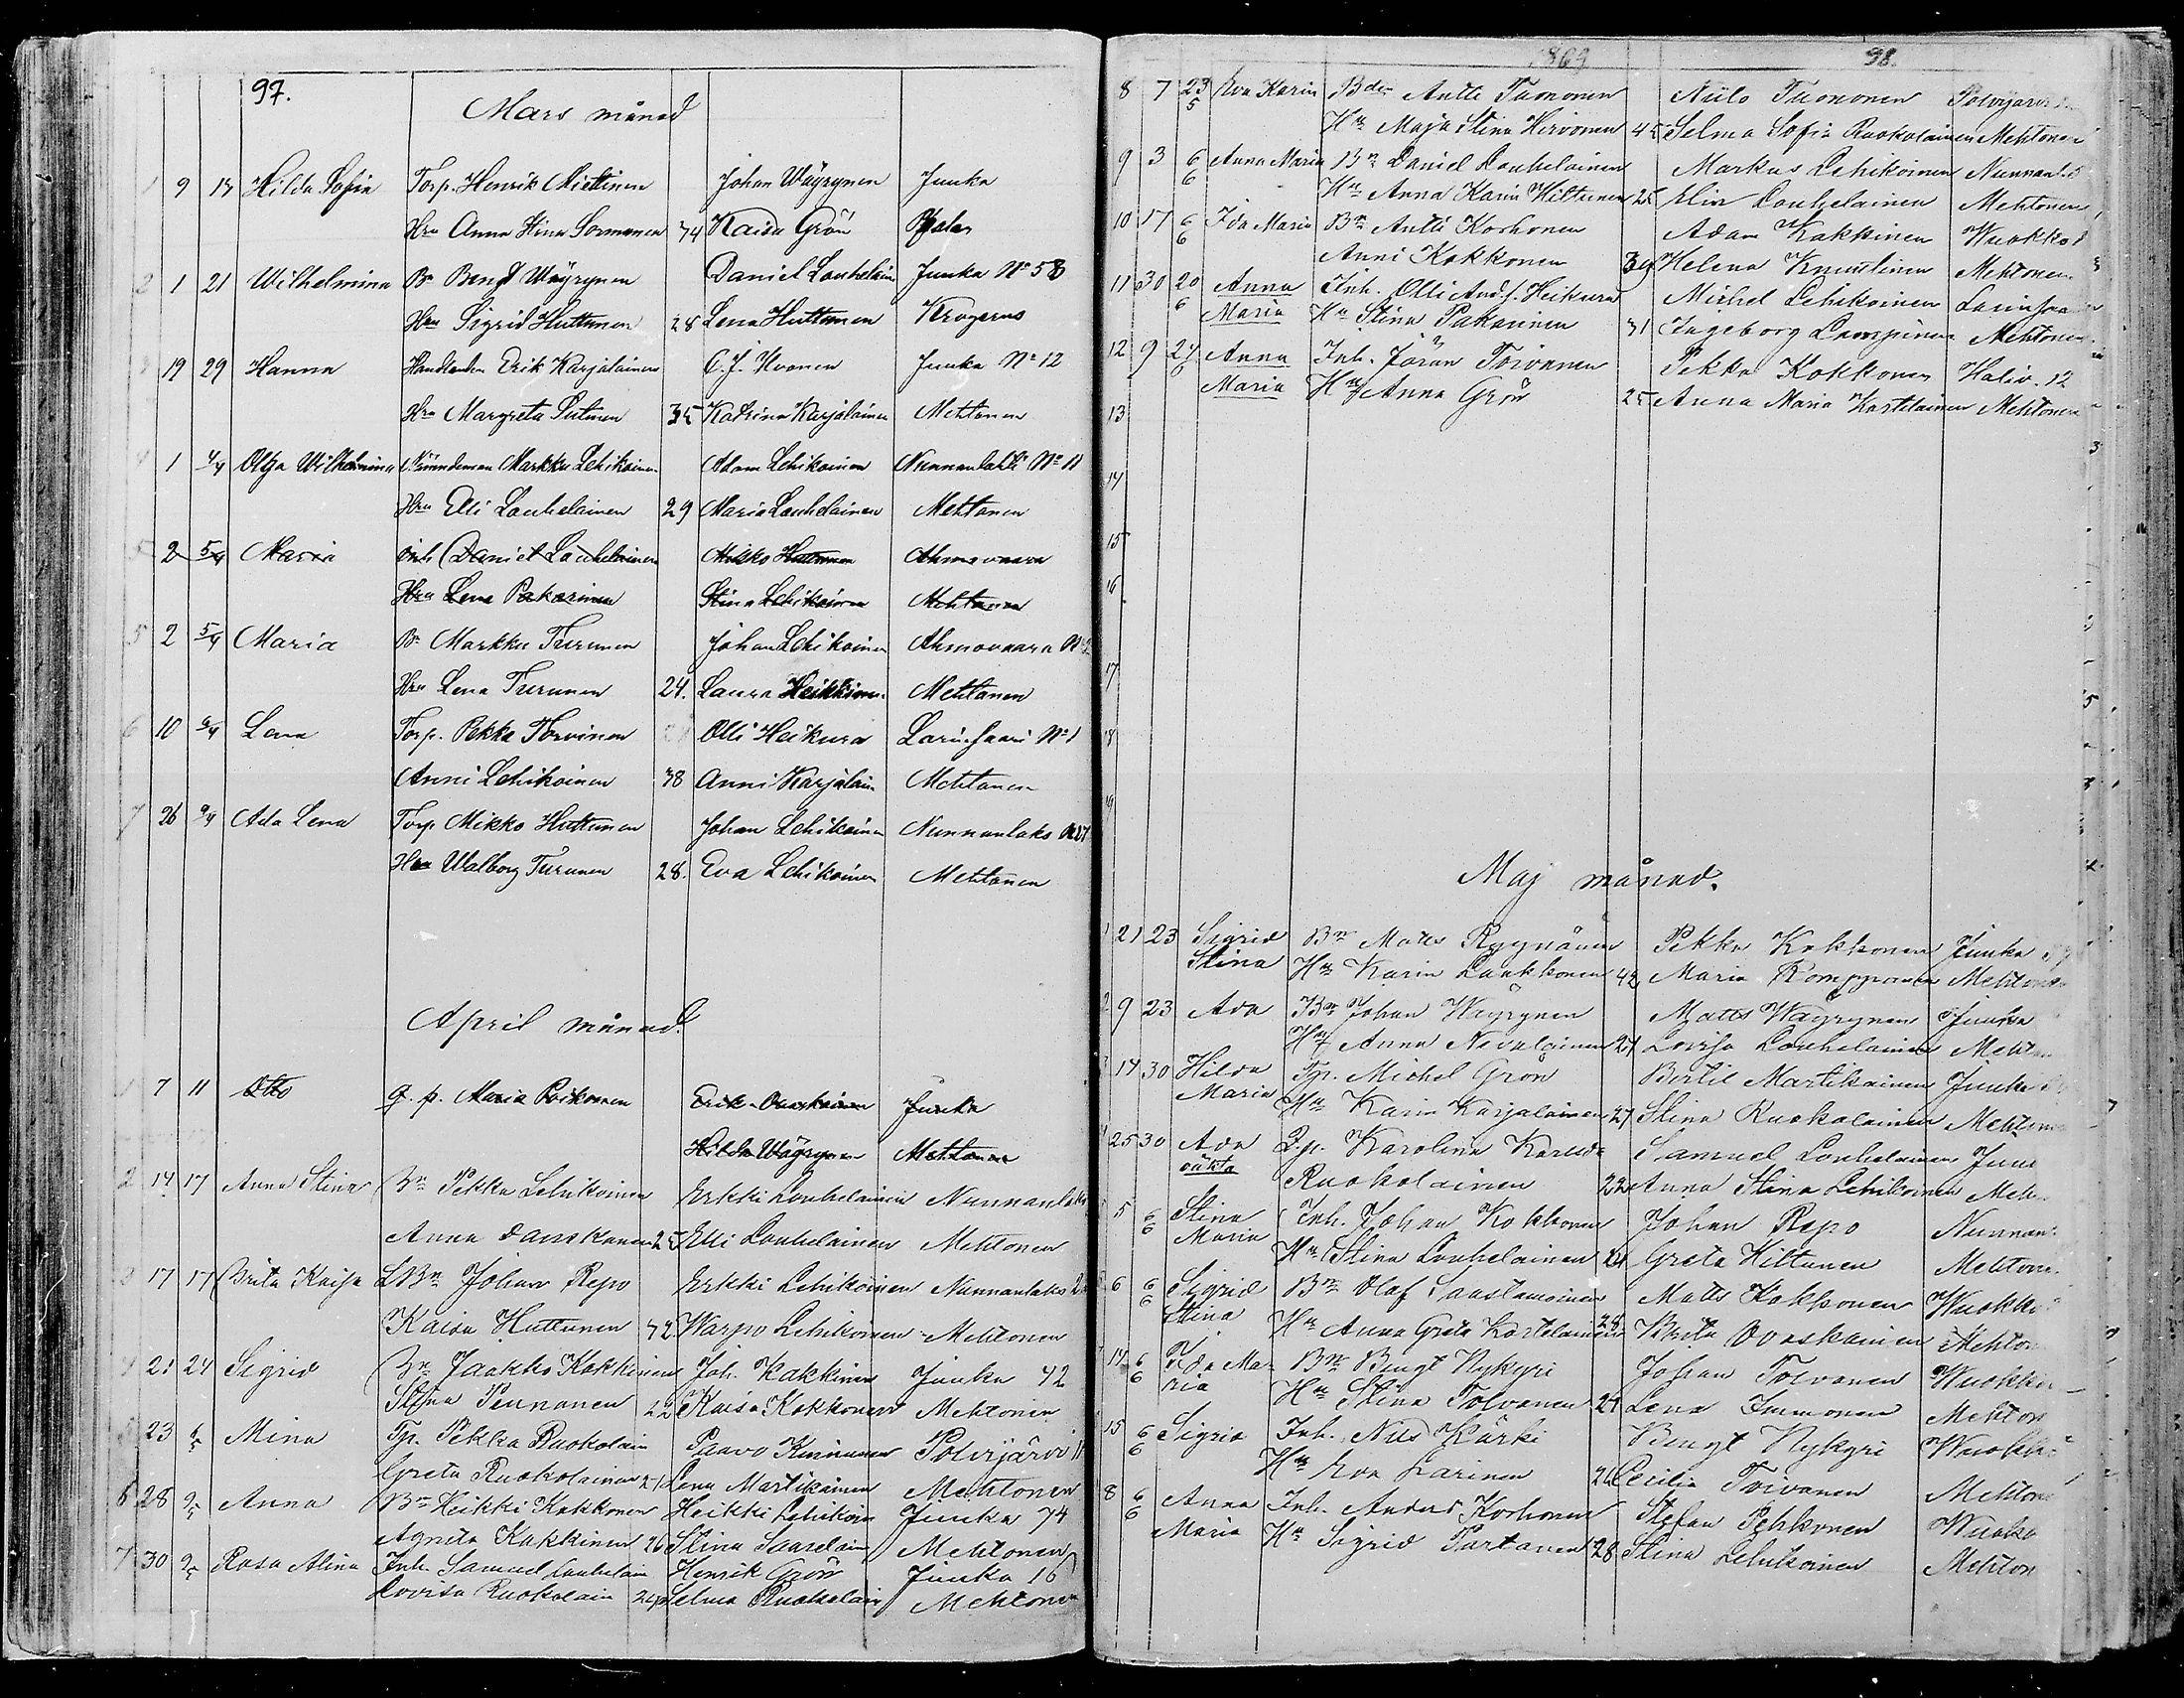 97.
Mars månad
1 9 14 Hilda Sofia Torp. Henrik Miettinen Johan Wäyrynen Juuka
Hru Anna Stina Sormunen 34 Kaisa Grön
2 1 21 Wilhelmina Bn Bengt Wäyrynen Daniel Louhelain Juuka No 58
Hru Sigrid Huttunen 28 Lena Huttunen Krogerus
3 19 29 Hanna Handlanden Erik Karjalainen C. J. Kvonen Juuka No 12
Hru Margreta Putinen 35 Katrina Karjalainen Mehtonen
4 1 4/4 Olga Wilhelmina Nämndeman Markku Lehikoinen Adam Lehikoinen Nunnanlahti No 11
Hru Elli Louhelainen 29 Maria Louhelainen Mehtonen
5 2 5/4 Maria Inh. Daniel Louhelainen Mikko Huttunen Ahmovaara
Hru Lena Pakarinen Stina Lehikoinen Mehtonen
5 2 5/4 Maria Bn Markku Turunen Johan Lehikoinen Ahmovaara No 2
Hru Lena Turunen 24. Laura Heikkinen Mehtonen
6 10 Lena Torp. Pekka Torvinen Olli Heikura Larinsaari No 1
Anni Lehikoinen 38 Anni Karjalain Mehtonen
7 26 9/4 Ada Lena Torp Mikko Huttunen Johan Lehikoinen Nunnanlaks
Hru Walborg Turunen 28. Eva Lehikoinen Mehtonen
April månad.
1 7 11 Otto Q. p. Maria Poikonen Erik Ovaskainen Juuka
Hilda Wäyrynen Mehtonen
2 14 17 Anna Stina Bn Pekka Lehikoinen Erkki Louhelainen Nunnanlaks
Anna Danskanen 25 Elli Louhelainen Mehtonen
3 17 17 Brita Kaisa LBn Johan Repo Erkki Lehikoinen Nunnanlaks
Kaisa Huttunen 42 Warpo Lehikoinen Mehtonen
4 21 24 Sigrid Bn Jaakko Kakkinen Joh. Kakkinen Juuka 42
Stina Pennanen 22 Kaisa Kokkonen Mehtonen
5 23 Mina Tp. Pekka Ruokolain Paavo Kinnunen Polvijärvi 11
Greta Ruokolainen 21 Lena Martikainen Mehtonen
6 28 9/5 Anna Bn Heikki Kokkonen Heikki Lehikoin Juuka 74
Agneta Kakkinen 26 Stina Saarelain Mehtonen
7 30 9/5 Rosa Alina Inh. Samuel Louhelain Henrik Grön Juuka 16
Lovisa Ruokolain 24 Selma Ruokolain Mehtonen
1869 98.
8 7 23/5 Eva Karin Bden Antti Tuononen Niilo Tuononen Polvijärvi
Hru Maja Stina Hirvonen 45 Selma Sofia Ruokolainen Mehtonen
9 3 6/6 Anna Maria Bn Daniel Louhelainen Markus Lehikoinen Nunnanl.
Hru Anna Karin Hiltunen 25 Elin Louhelainen Mehtonen
10 17 6/6 Ida Maria Bn Antti Korhonen Adam Kakkinen Wuokko
Anni Kokkonen 39 Helena Knuutinen Mehtonen
11 30 20/6 Anna Inh. Olli And.s. Heikura Michel Lehikoinen Larinsaa
Maria Hu Stina Pakarinen 31 Ingeborg Lampinen Mehtonen
12 9 27/6 Anna Inh. Jöran Toivanen Pekka Kokkonen Haliv. 12
Maria Hru Anna Grön 25 Anna Maria Kortelainen Mehtonen
13
14
15
16
17
18
19
Maj månad.
1 21 23 Sigrid Bn Matts Ryynänen Pekka Kokkonen Juuka
Stina Hru Karin Laukkonen 42 Maria Romppanen Mehtonen
2 9 23 Ada Bn Johan Wäyrynen Matts Wäyrynen Juuka
Hru Anna Nevalainen 21 Lovisa Louhelainen Mehton
3 14 30 Hilda Tp. Michel Grön Bertil Martikainen Juuka
Maria Hu Karin Karjalainen 27 Stina Ruokolainen Mehtonen
4 25 30 Ada Q.p. Karolina Karlsd. Samuel Louhelainen Juu
oäkta Ruokolainen 22 Anna Stina Lehikoinen Meh
5 6/6 Stina Inh. Johan Kokkonen Johan Repo Nunnanl.
Maria Hru Stina Louhelainen 24 Greta Hiltunen Mehtonen
6 6/6 Sigrid Bn Olof Saastamoinen Matts Kokkonen Wuokko
Stina Hru Anna Greta Kortelainen 28. Brita Ovaskainen Mehton
14 6/6 Ida Ma- Bn Bengt Nykyri Johan Toivanen Wuokko
ria Hru Stina Tolvanen 24 Lena Immonen Mehton
15 6/6 Sigrid Inh. Nils Kärki Bengt Nykyri Wuokko
Hru Eva Larinen 26 Cecilia Toivanen Mehtone
8 6/6 Anna Inh. Anders Korhonen Stefan Pehkonen Wuoko
Maria Hu Sigrid Partanen 28 Stina Lehikoinen Mehton